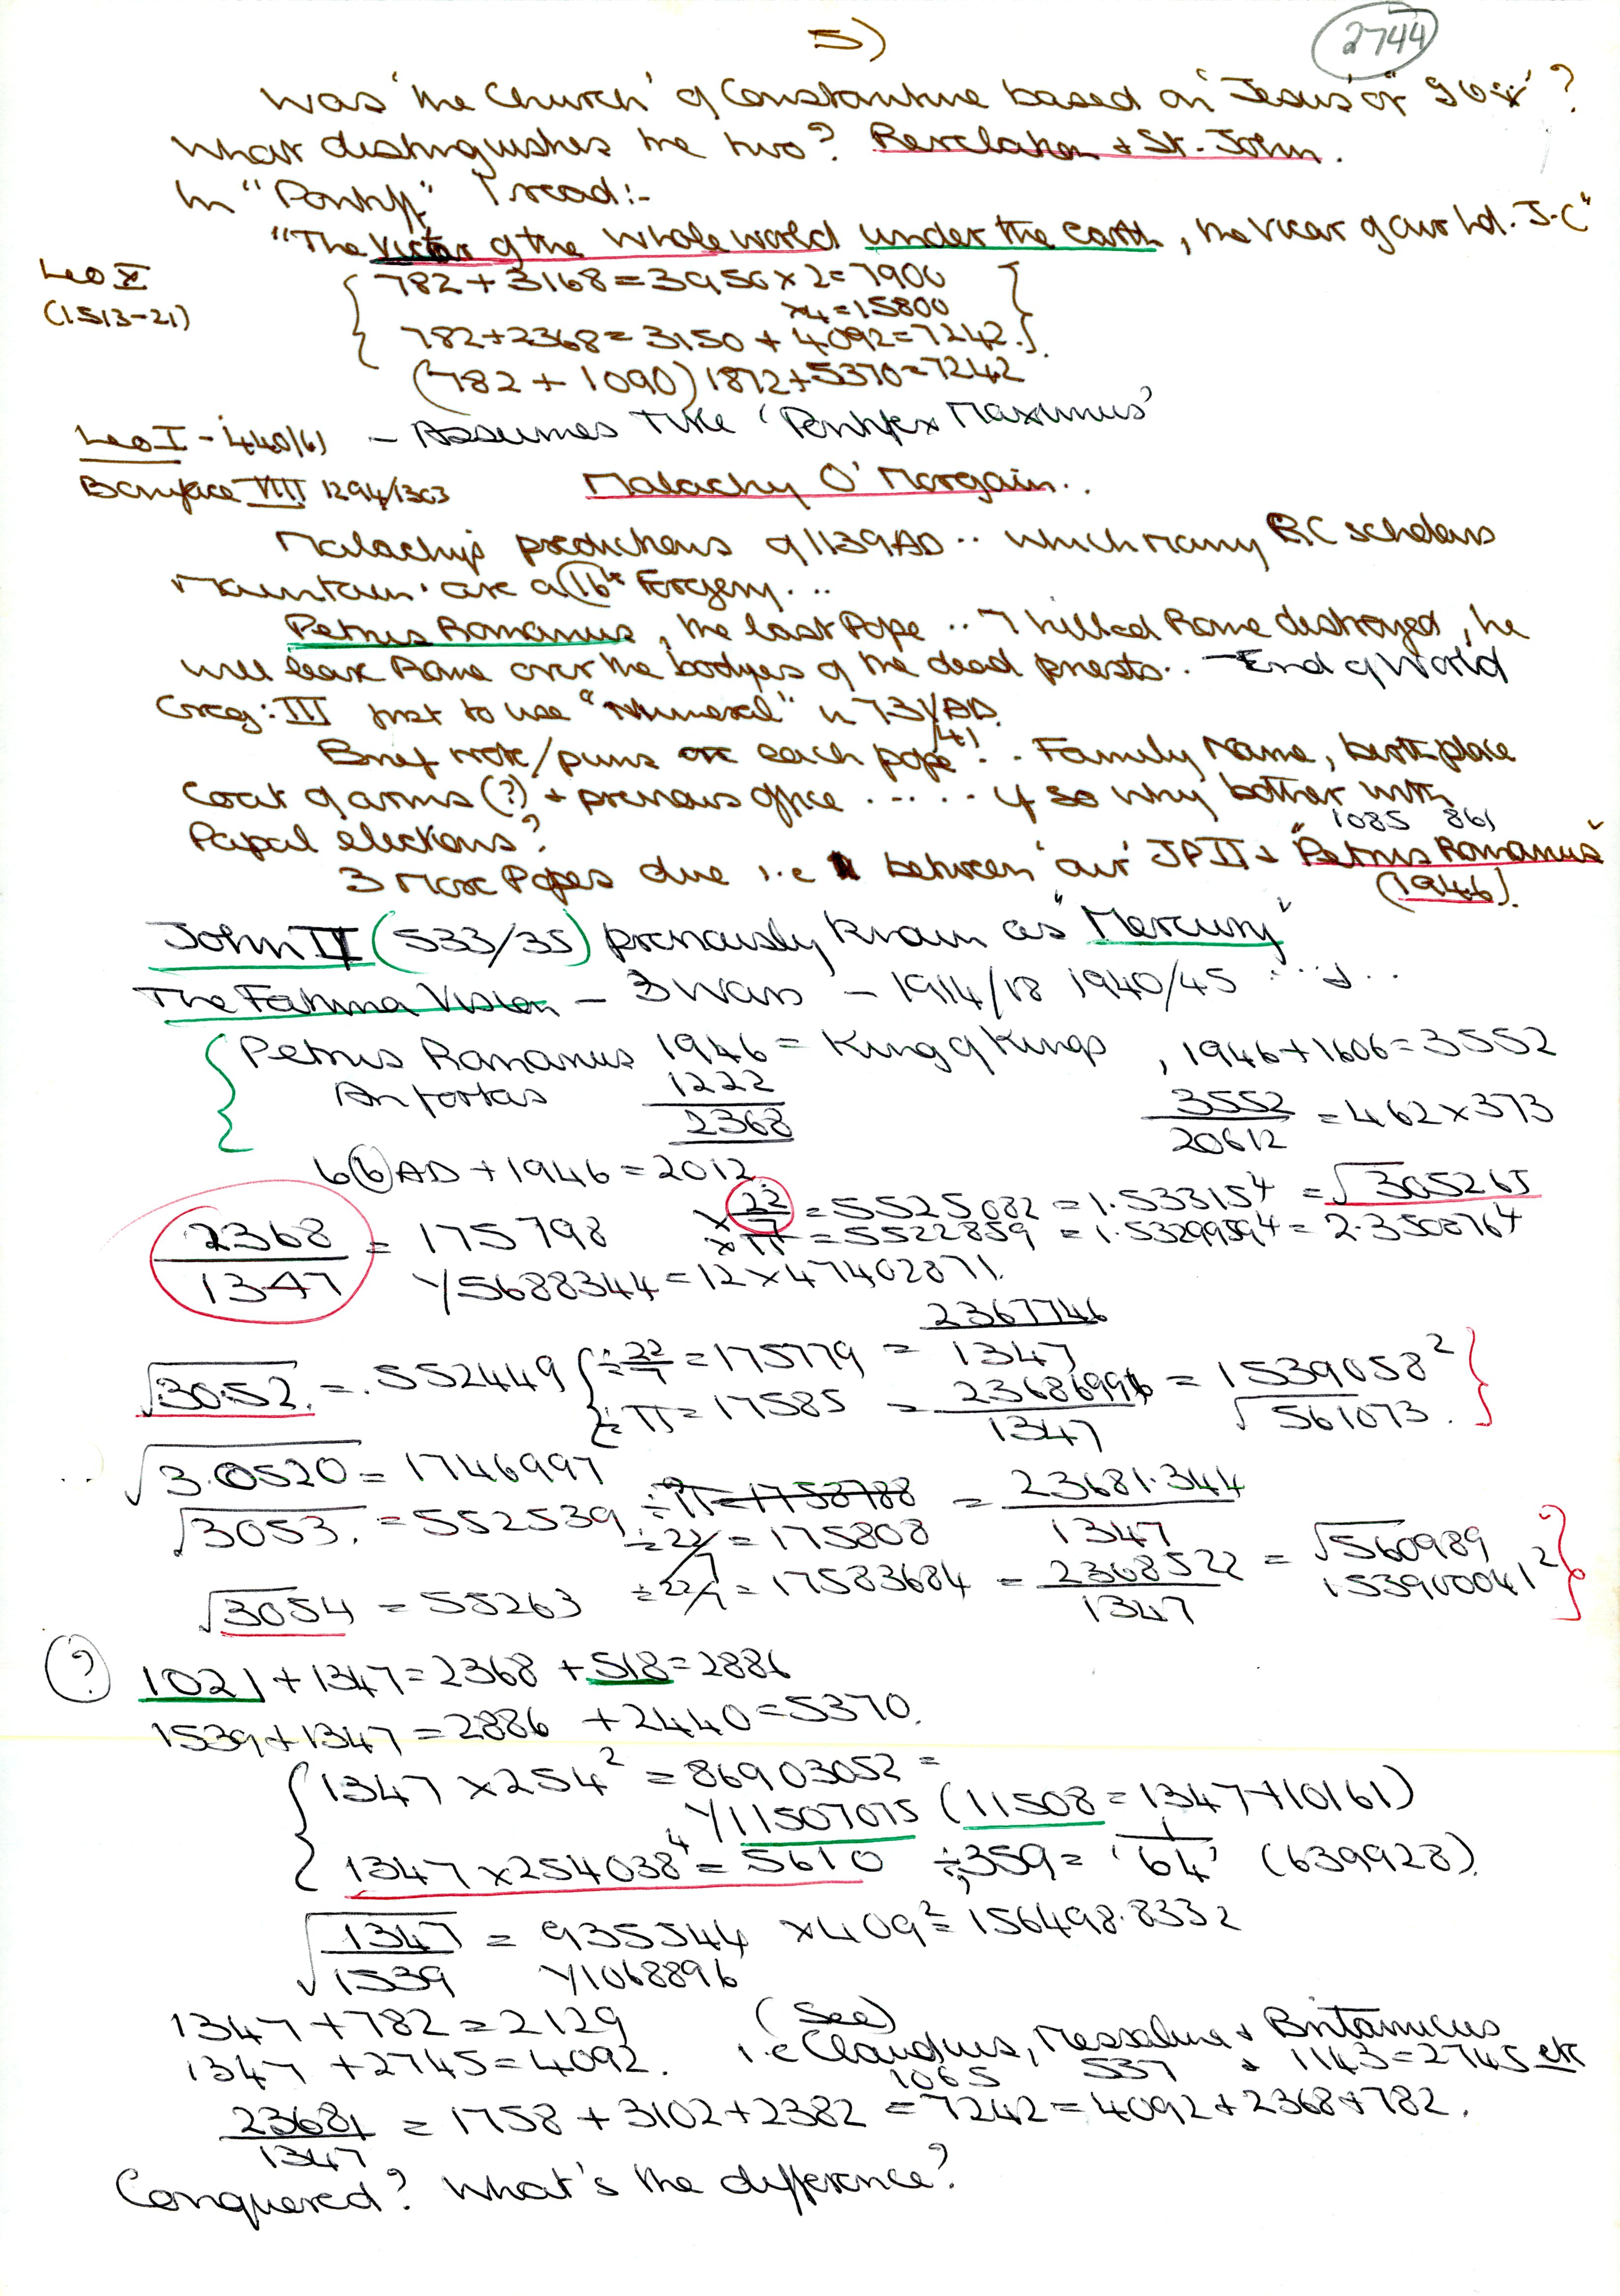 5)
2744
Was 'the Church' of Constantine based on 'Jesus' or
What distinguishes the two? Revelation + St. John.
In "Pontiff" I read:-
"The Victor of the whole world under the earth, the Vicar of our Ld. J.C"
Leo X
(1513-21)
782+3168=3950x2=7900
x4=15800
782+2368=3150+4092=7242.
(782+1090)1872+5370=7242
Leo I - 440/61 - Assumes Title 'Pontifex Maximus'
Boniface VIII 1294/1303
Malachy O'Morgain..
Malachy's predictions of 1139AD.. which many RC scholars
maintain. are a 16th Forgery...
Petrus Romanus, the last Pope .. killed Rome destroyed, he
will leave Rome over the bodyes of the dead priests.. - End of World
Greg: III first to use "Numeral" in 731/AD.
/41
Brief note/puns each pope!.. Family Name, birthplace
Coat of arms (?) + previous office ..... if so why bother with
Papal elections?
1085 861
3 more Popes due i.e between 'our' JP II + "Petrus Romanus"
(1946).
John II (533/35) previously known as "Mercury"
The Fatima Vision - 3 Wars - 1914/18 1940/45 ...
Petrus Romanus 1946 = King of Kings , 1946+1606=3552
Anfortas 1222
2368
3552/20612 = 462x373
66AD+1946=2012
2368/1347 = 175798
x 22/7 = 5525082 = 1.53315⁴ = √305265
xπ = 5522859 = 1.5329959⁴ = 2.3508764
Y5688344=12x47402871.
√3052. = .552449 { ÷22/7 =175779 = 2367746/1347
÷π= 17585 = 23686996/1347 = 1539058²
√561073.
.. √3.0520 = 1746997
√3053. = 552539 ÷π=1758788 = 23681.344/1347
÷22/7 = 175808
√3054 = 55263 ÷22/7 = 17583684 = 2368522/1347 = √560989
153900041²
? 1021+1347=2368+518=2886
1539+1347=2886 +2440=5370.
1347x254²=86903052=
Y11507075 (11508=1347+10161)
1347x254038⁴=5610 ÷359= '1/64' (639928).
√1347/1539 = 935544 x409²=156498.8332
Y1068896
1347+782=2129 (See)
1347+2745=4092. i.e Claudius, Messalina + Britanicus
1065 537 + 1143=2745 etc
23681/1347 = 1758+3102+2382=7242=4092+2368+782.
Conquered? What's the difference?